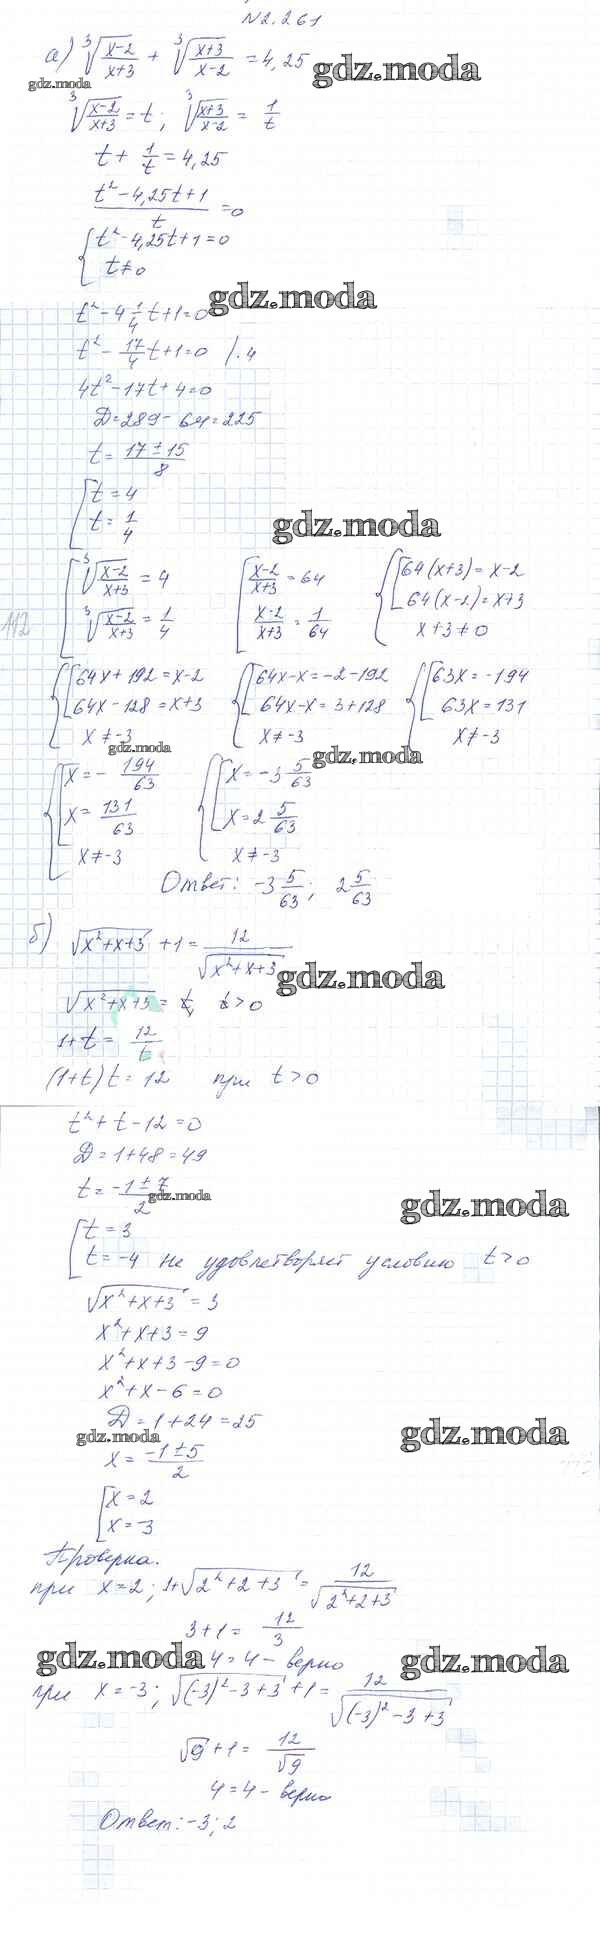 №2.261
а) ∛((x-2)/(x+3)) + ∛((x+3)/(x-2)) = 4,25
gdz.moda
gdz.moda
∛((x-2)/(x+3)) = t; ∛((x+3)/(x-2)) = 1/t
t + 1/t = 4,25
(t²-4,25t+1)/t = 0
{ t²-4,25t+1=0
t≠0
gdz.moda
t²-4 1/4 t+1=0
t² - 17/4 t+1=0 /·4
4t²-17t+4=0
D=289-64=225
t= (17±15)/8
[ t=4
t= 1/4
gdz.moda
[ ∛((x-2)/(x+3)) = 4 [ (x-2)/(x+3) = 64 { [ 64(x+3)=x-2
∛((x-2)/(x+3)) = 1/4 (x-2)/(x+3) = 1/64 64(x-2)=x+3
112
x+3≠0
{ [ 64x+192=x-2 { [ 64x-x=-2-192 { [ 63x=-194
64x-128=x+3 64x-x=3+128 63x=131
x≠-3 x≠-3 x≠-3
gdz.moda
gdz.moda
{ [ x=- 194/63 { [ x=-3 5/63
x= 131/63 x=2 5/63
x≠-3 x≠-3
Ответ: -3 5/63; 2 5/63
б) √(x²+x+3) +1= 12/√(x²+x+3)
gdz.moda
√(x²+x+3) = t, t>0
1+t= 12/t
(1+t)t=12 при t>0
t²+t-12=0
D=1+48=49
t= (-1±7)/2
gdz.moda
gdz.moda
[ t=3
t=-4 не удовлетворяет условию t>0
√(x²+x+3) = 3
x²+x+3=9
x²+x+3-9=0
x²+x-6=0
D=1+24=25
gdz.moda
gdz.moda
x= (-1±5)/2
[ x=2
x=-3
Проверка.
при x=2; 1+√(2²+2+3) = 12/√(2²+2+3)
3+1= 12/3
gdz.moda
gdz.moda
4=4- верно
при x=-3; √((-3)²-3+3) +1= 12/√((-3)²-3+3)
√9+1= 12/√9
4=4- верно
Ответ: -3; 2